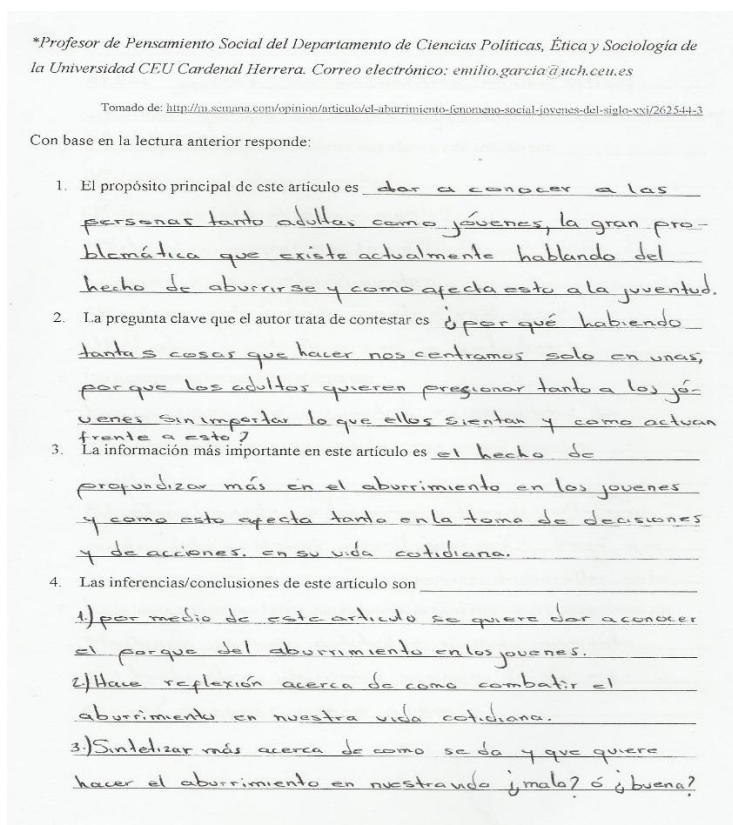 *Profesor de Pensamiento Social del Departamento de Ciencias Políticas, Ética y Sociología de
la Universidad CEU Cardenal Herrera. Correo electrónico: emilio.garcia@uch.ceu.es
Tomado de: http://m.semana.com/opinion/articulo/el-aburrimiento-fenomeno-social-jovenes-del-siglo-xxi/262544-3
Con base en la lectura anterior responde:
1. El propósito principal de este artículo es dar a conocer a las
personas tanto adultas como jóvenes, la gran pro-
blemática que existe actualmente hablando del
hecho de aburrirse y como afecta esto a la juventud.
2. La pregunta clave que el autor trata de contestar es ¿por qué habiendo
tantas cosas que hacer nos centramos solo en unas,
por que los adultos quieren presionar tanto a los jó-
venes sin importar lo que ellos sientan y como actuan
frente a esto?
3. La información más importante en este artículo es el hecho de
profundizar más en el aburrimiento en los jovenes
y como esto afecta tanto en la toma de decisiones
y de acciones. en su vida cotidiana.
4. Las inferencias/conclusiones de este artículo son
1.) por medio de este articulo se quiere dar a conocer
el porque del aburrimiento en los jovenes.
2.) Hace reflexión acerca de como combatir el
aburrimiento en nuestra vida cotidiana.
3.) Sintetizar más acerca de como se da y que quiere
hacer el aburrimiento en nuestra vida ¿mala? ó ¿buena?